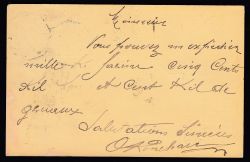 Monsieur
Vous pouvez m'expédier
mille farine Cinq Cent
Kil et Cent Kil de
gruaux
Salutations Sincères